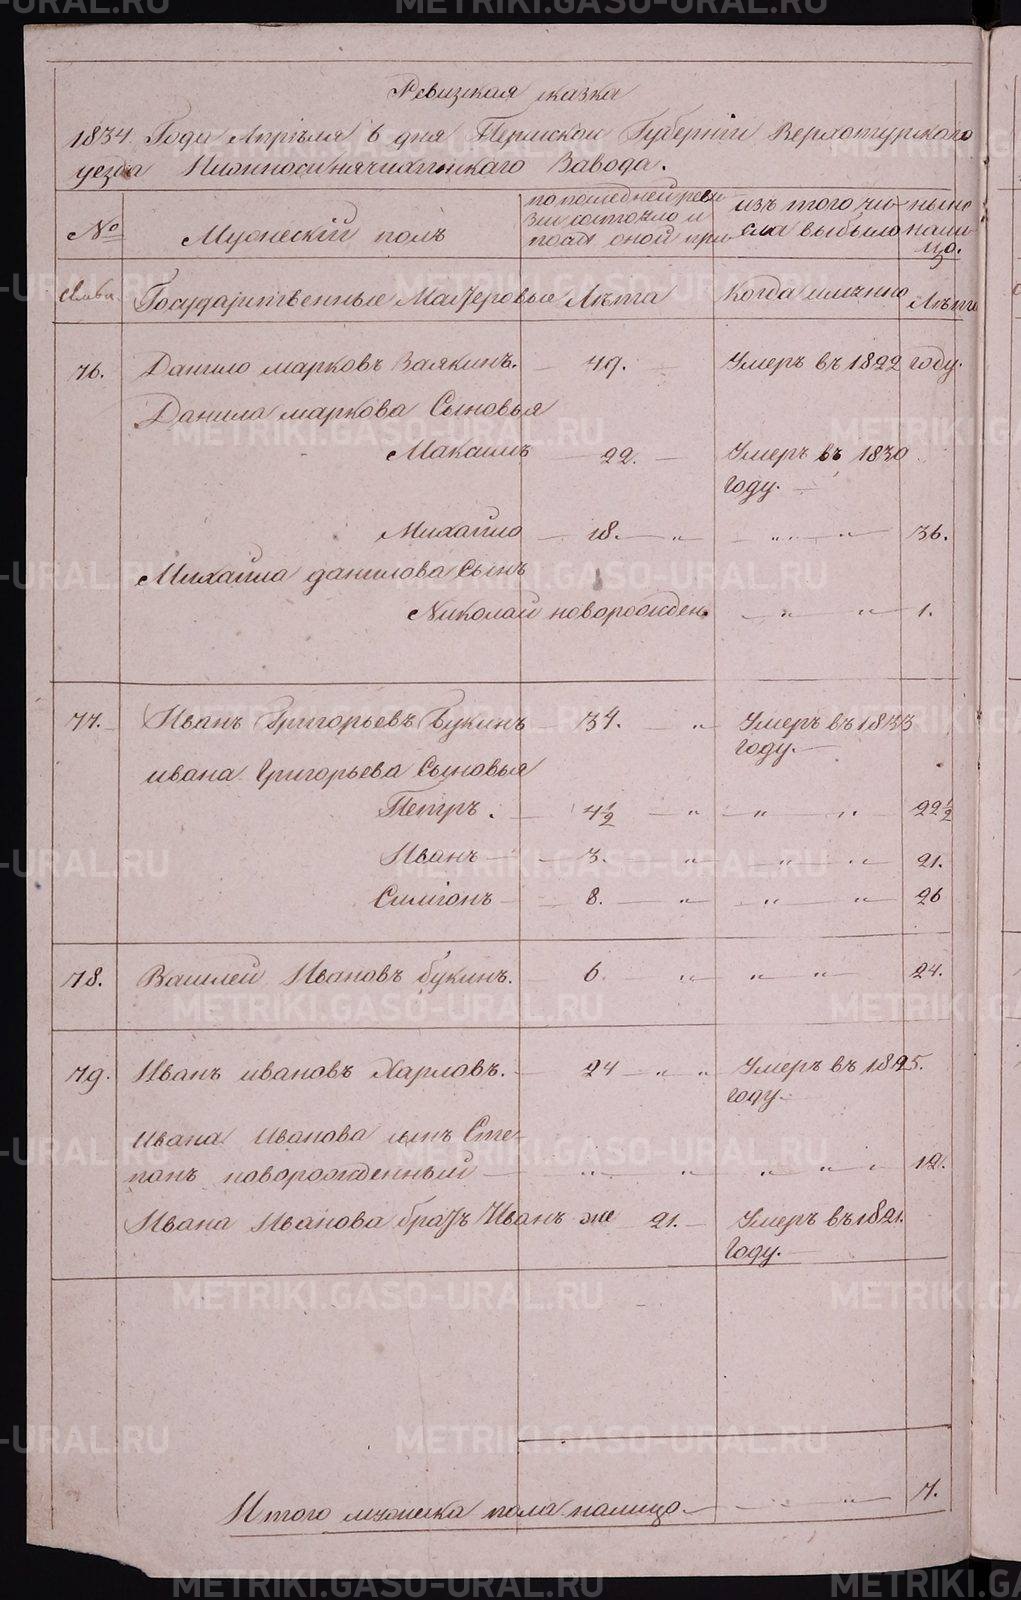 Ревизкая сказка
1834 Года Апреля 6 дня Пермской Губернiи Верхотурскаго
уезда Нижносинячихинскаго Завода.
№ Мужескiй полъ по последней реви- изъ того чи- ныне
зiи состояло и сла выбыло нали-
после оной при- цо.
Государственные Мастеровые Лета Когда именно Лета
76. Данило марковъ Заякинъ. 49. Умеръ въ 1822 году.
Данила маркова Сыновья
Максимъ 22. Умеръ въ 1830
году.
Михайло 18. „ „ „ 36.
Михайла данилова Сынъ
Николай новорожден. „ „ 1.
77. Иванъ Григорьевъ Букинъ 34. „ Умеръ въ 1833
году.
ивана Григорьева Сыновья
Петръ. 4½ „ „ „ 22½
Иванъ 3. „ „ „ 21.
Симiонъ 8. „ „ „ 26
78. Василей Ивановъ букинъ. 6. „ „ „ 24.
79. Иванъ ивановъ Харловъ. 24 „ „ Умеръ въ 1825.
году
Ивана Иванова сынъ Сте-
панъ новорожденный „ „ „ „ 12.
Ивана Иванова братъ Иванъ же 21. Умеръ въ 1821.
Году.
Итого мужеска пола налицо „ 7.
METRIKI.GASO-URAL.RU